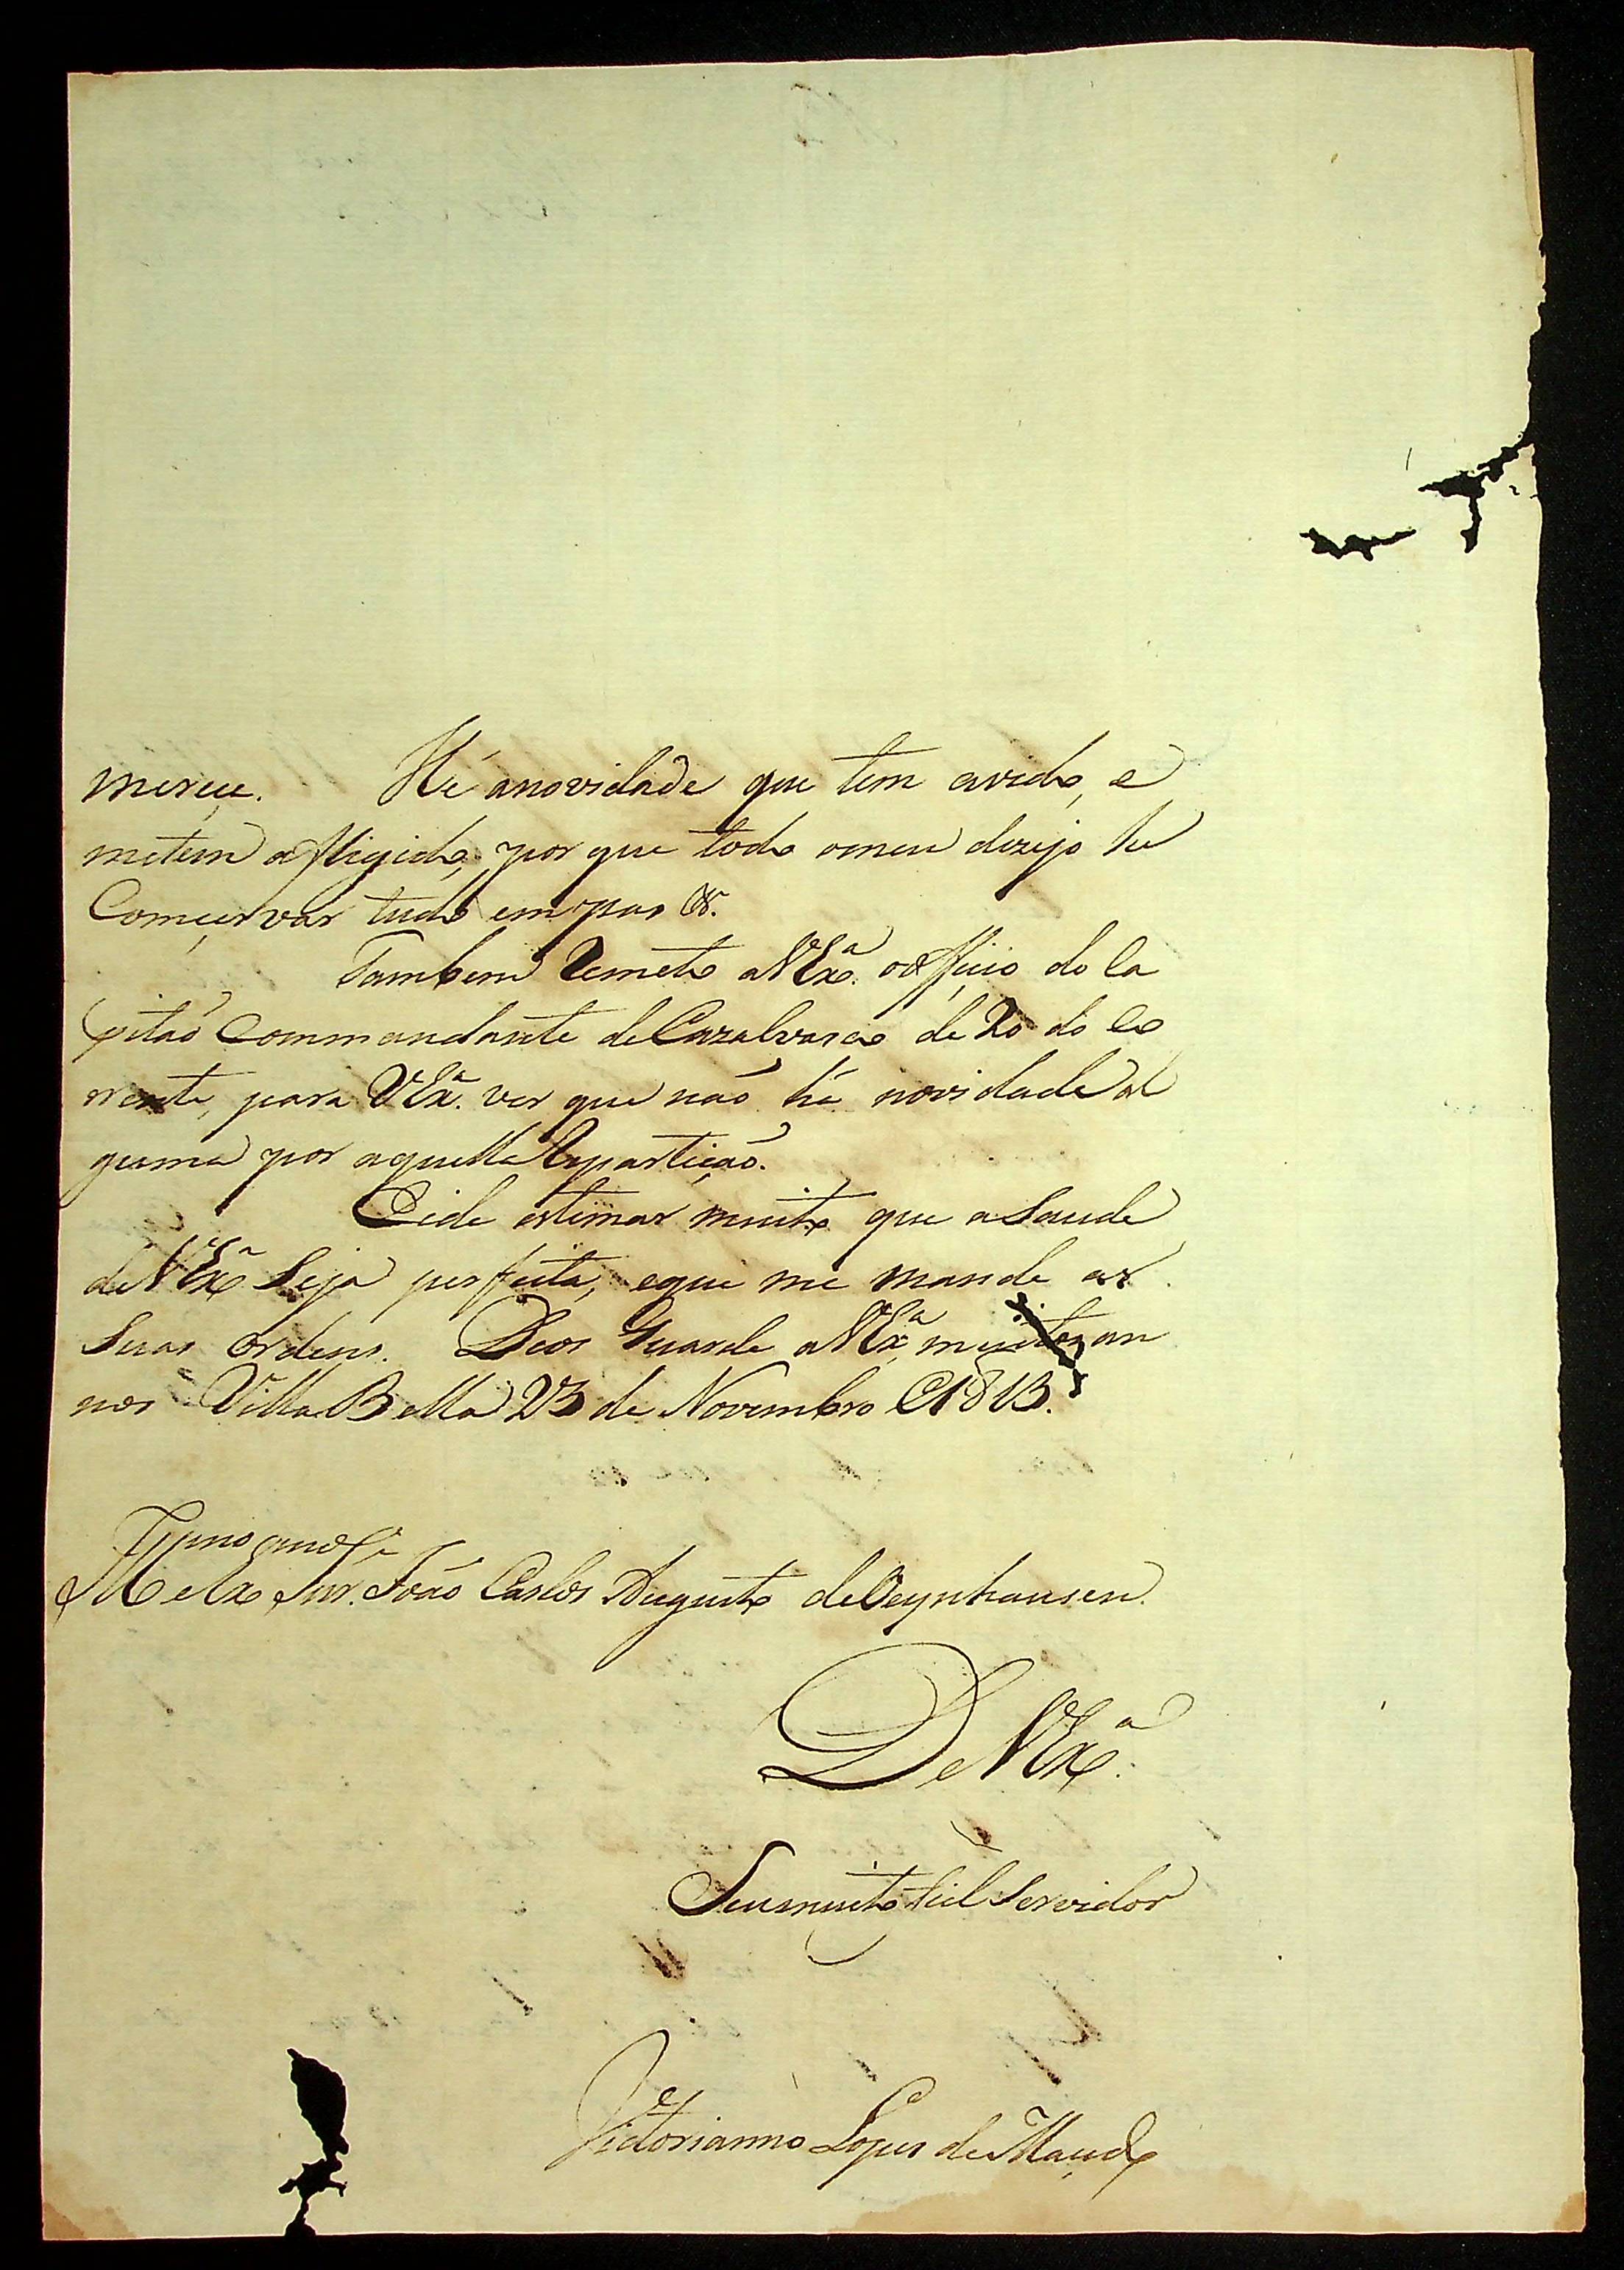 mereçe. Hé anovidade que tem avido, e
metem afligido, por que todo omeu dezejo he
Comçervar tudo empas &.
Tambem Remeto aVExª. oofficio do Ca
pitaõ Commandante deCazalvasco de 20 do Co
rrente, para VExª. ver que naõ há novidade al
guma por aquella Repartiçaõ.
Eide estimar muito que aSaude
deVExª Seja perfeita, eque me mande as
Suas ordens. Deos Guarde aVExª muitos an
nos Villa Bella 23 de Novembro 1813.
Illmo eExmo Snr. Joaõ Carlos Augusto deOeynhausen.
DeVExª.
Seumuito fiel Servidor
Victorianno Lopes de Maçedo